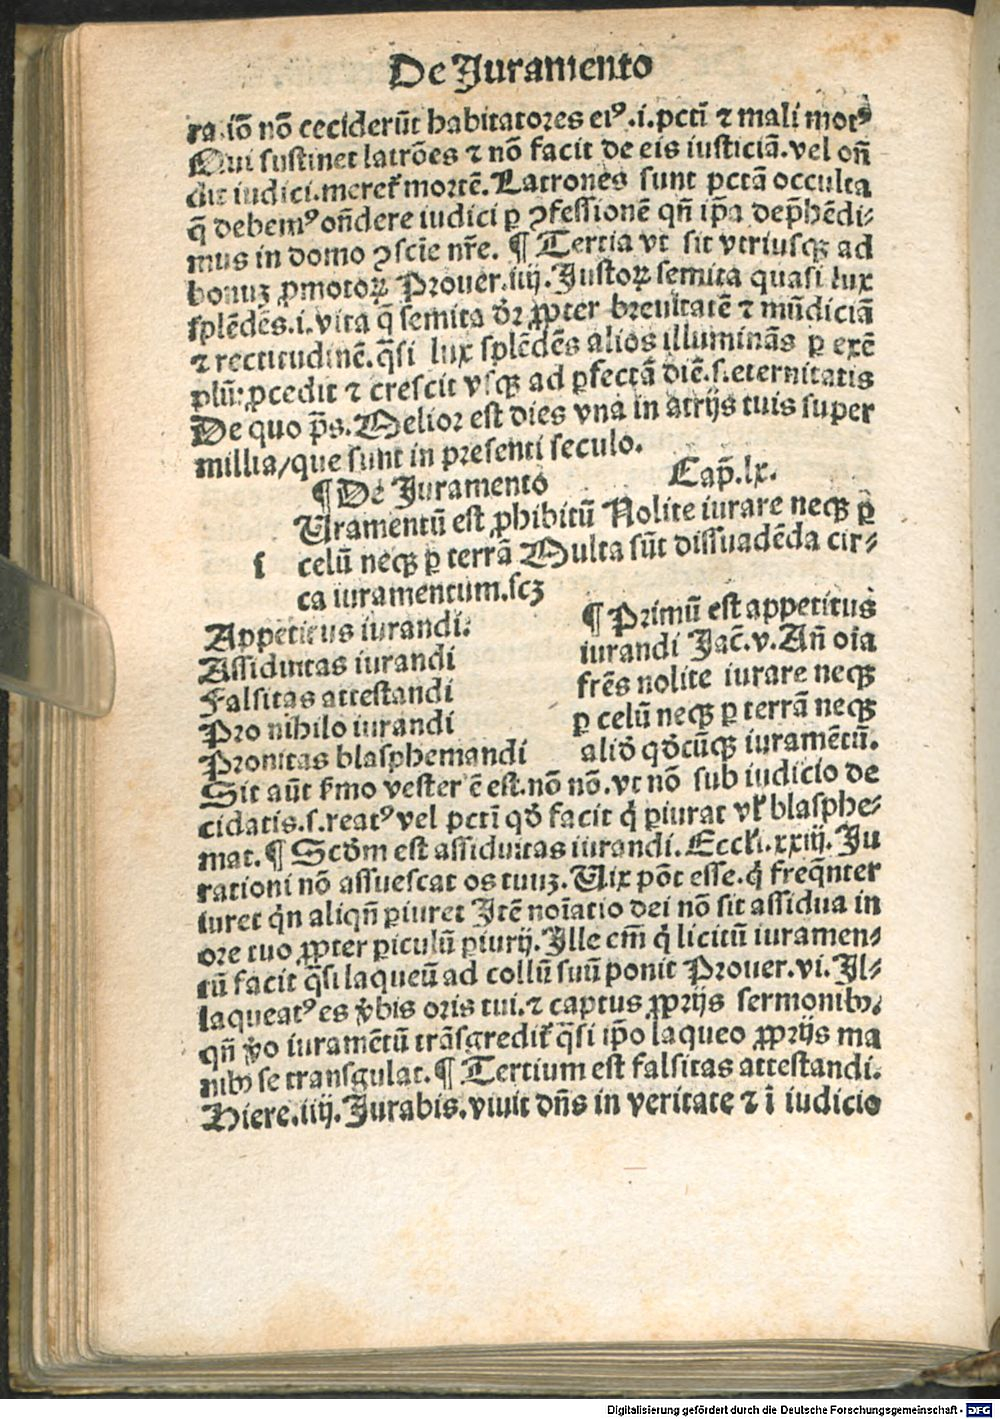 De Juramento
ra .iō nō ceciderūt habitatores eiꝰ .i. pctī ⁊ mali motꝰ
Qui sustinet latrōes ⁊ nō facit de eis iusticiā. vel oñ
dit iudici. meret᷑ mortē. Latrones sunt pctā occulta
q̄ debemꝰ oñdere iudici ꝑ ꝯfessionē qñ ip̄a dep̄hēdi-
mus in domo ꝯscīe nr̄e. ¶ Tertia vt sit vtriusqꝫ ad
bonuꝫ ꝓmotoꝝ Prouer. iiij. Justoꝝ semita quasi lux
splēdēs .i. vita q̄ semita dr̄ ꝓpter breuitatē ⁊ mūdiciā
⁊ rectitudinē. q̄si lux splēdēs alios illuminās ꝑ exē
plū: ꝓcedit ⁊ crescit vsqꝫ ad ꝑfectā diē .s. eternitatis
De quo p̄s. Melior est dies vna in atrijs tuis super
millia/ que sunt in presenti seculo.
¶ De Juramento Cap̄. lx.
Uramentū est ꝓhibitū Nolite iurare neqꝫ ꝑ
i celū neqꝫ ꝑ terrā Multa sūt dissuadēda cir-
ca iuramentum. scꝫ
Appetitus iurandi.
Assiduitas iurandi
Falsitas attestandi
Pro nihilo iurandi
Pronitas blasphemandi
¶ Primū est appetitus
iurandi Jac̄. v. Añ oīa
frēs nolite iurare neqꝫ
ꝑ celū neqꝫ ꝑ terrā neqꝫ
aliḋ qḋcūqꝫ iuramētū.
Sit aūt ẜmo vester ē est. nō nō. vt nō sub iudicio de
cidatis .s. reatꝰ vel pctī qḋ facit q̇ ꝑiurat vꝉ blasphe-
mat. ¶ Scḋm est assiduitas iurandi. Eccꝉi. xxiij. Ju
rationi nō assuescat os tuuꝫ. Uix pōt esse. q̇ freq̄nter
iuret q̇n aliqñ ꝑiuret Jtē noīatio dei nō sit assidua in
ore tuo ꝓpter ꝑiculū ꝑiurij. Jlle em̄ q̇ licitū iuramen-
tū facit q̄si laqueū ad collū suū ponit Prouer. vi. Jl-
laqueatꝰ es v̇bis oris tui. ⁊ captus ꝓprijs sermonibꝰ.
qñ v̇o iuramētū trāsgredit᷑ q̄si ip̄o laqueo ꝓprijs ma
nibꝰ se transgulat. ¶ Tertium est falsitas attestandi.
Hiere. iiij. Jurabis. viuit dñs in veritate ⁊ ī iudicio
Digitalisierung gefördert durch die Deutsche Forschungsgemeinschaft - DFG